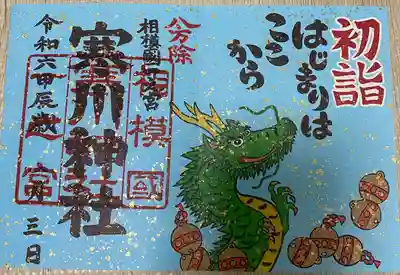 初詣
はじまりは
ここ
から
八方除
相模國一之宮
寒川神社
相模國
令和六甲辰歳
三日